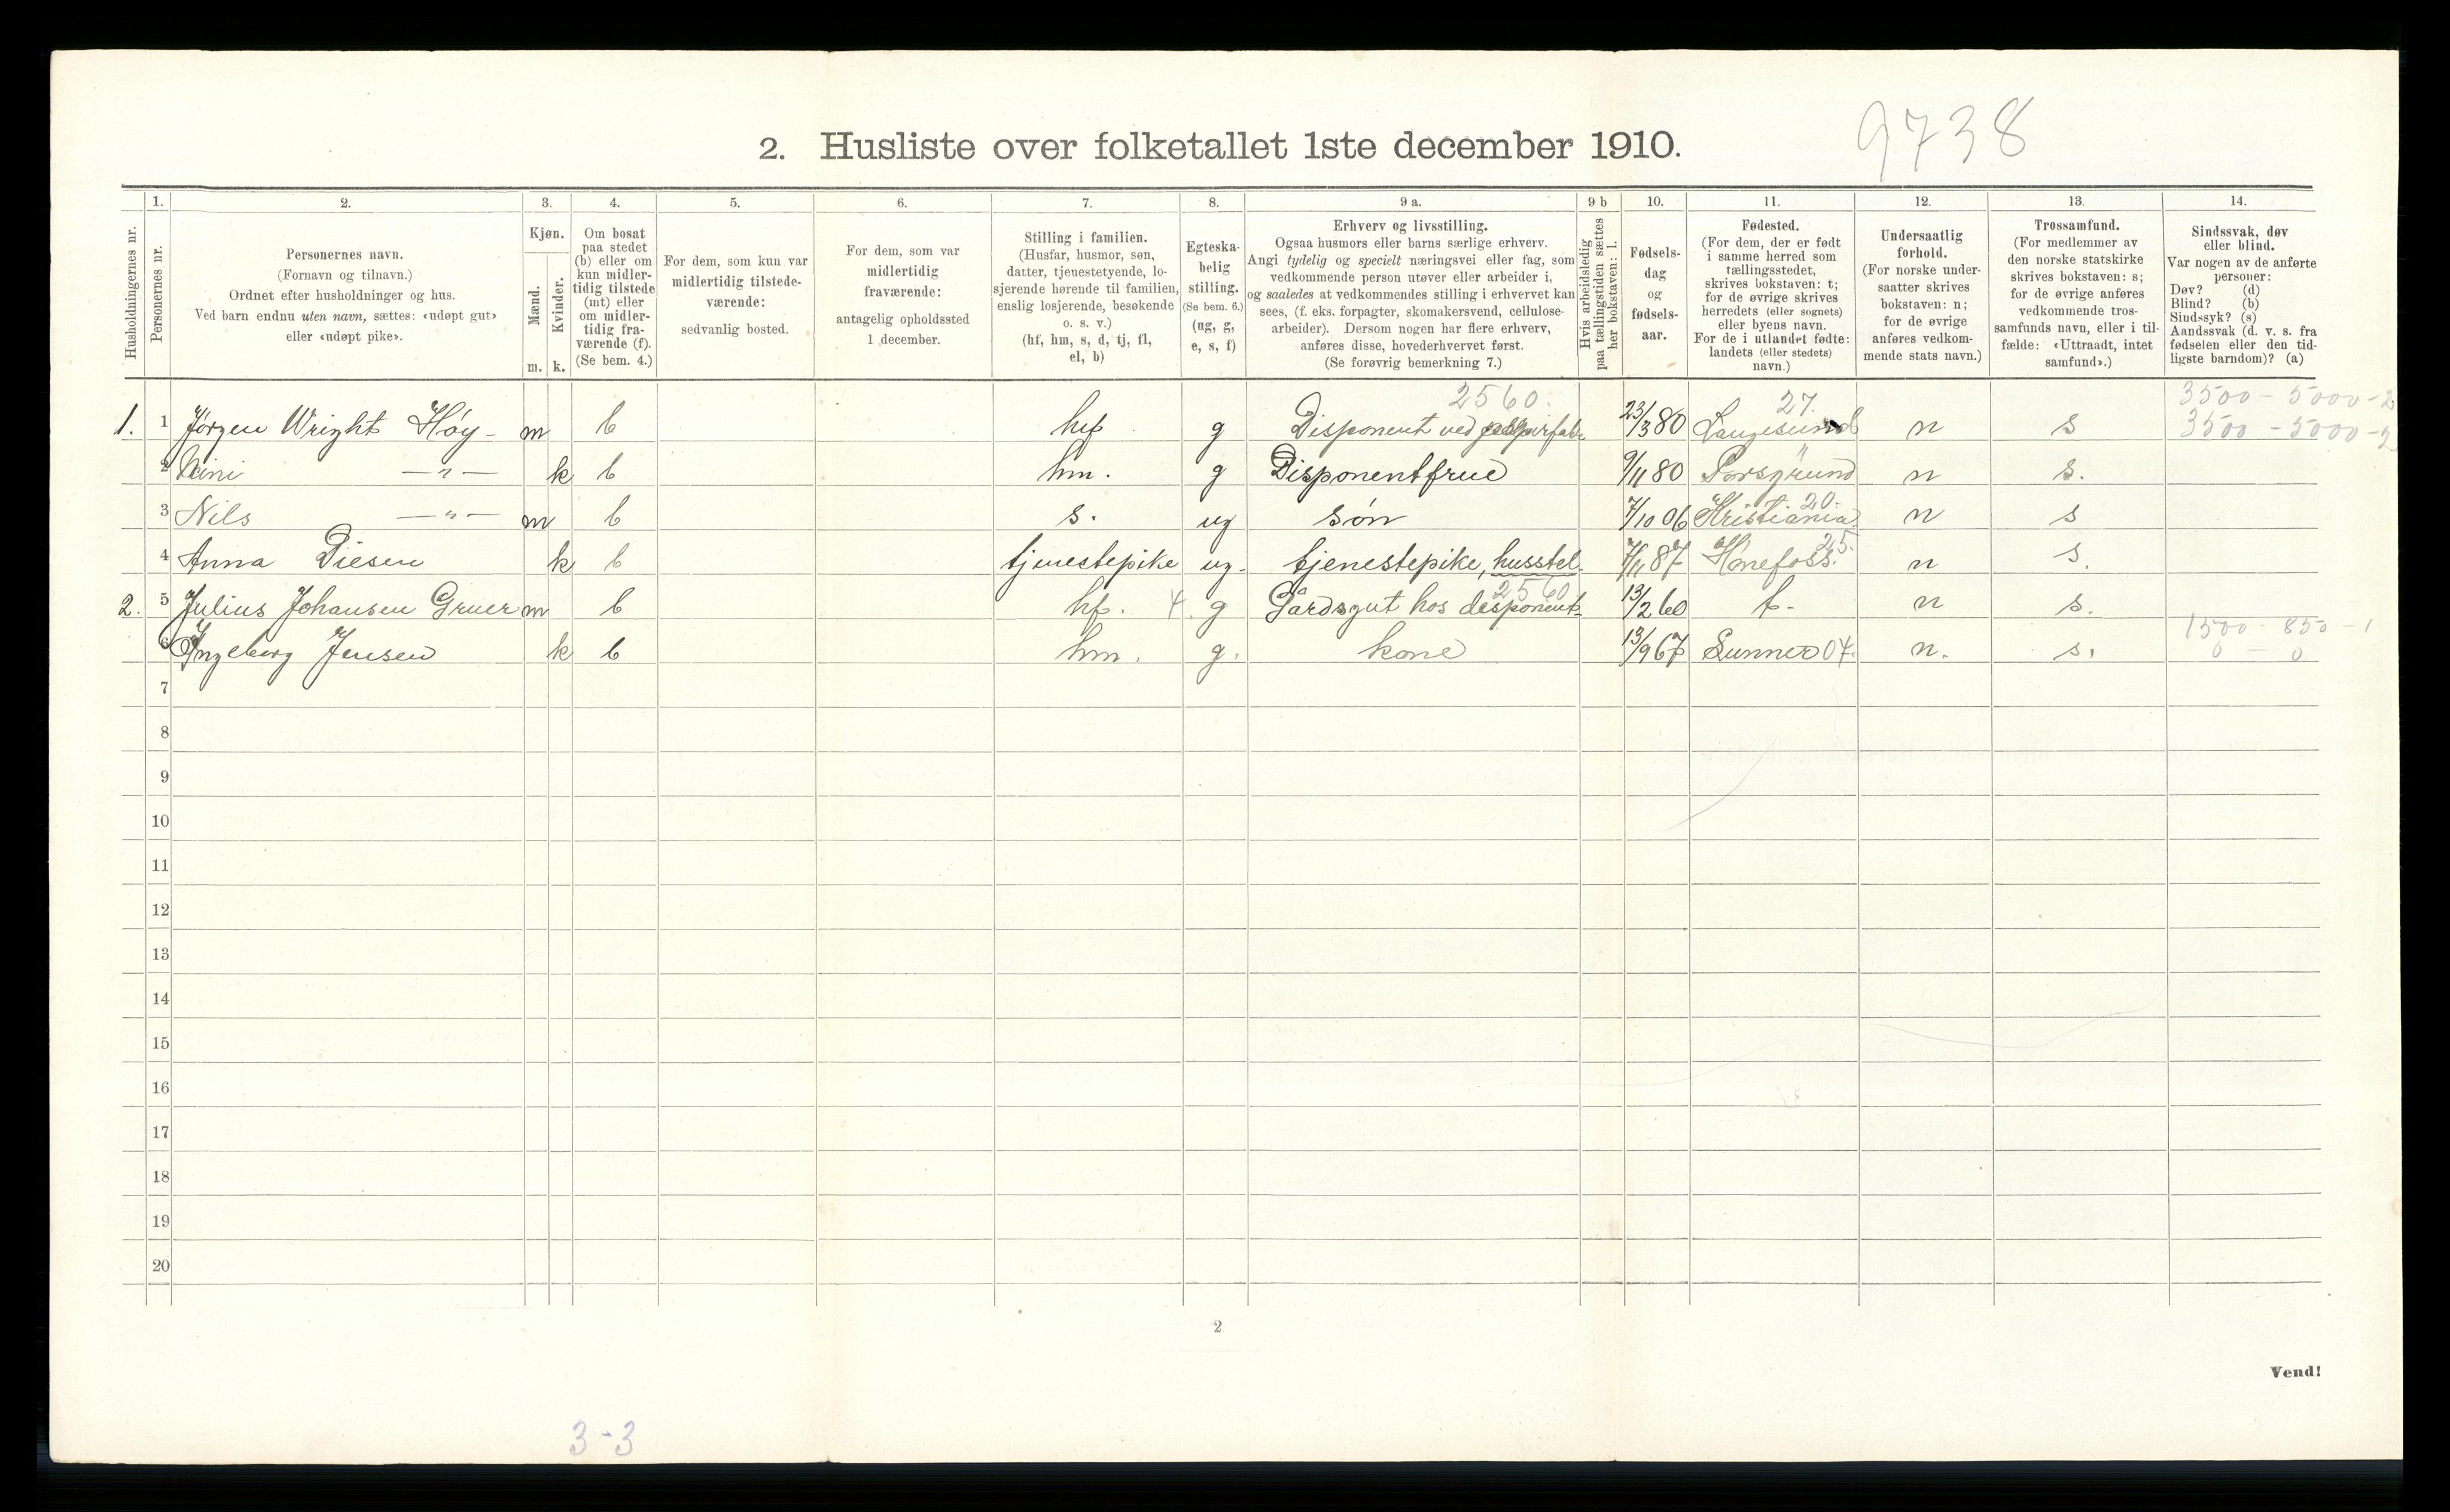 9738
2. Husliste over folketallet 1ste december 1910.
Husholdningernes nr.
1. Personernes nr.
2. Personernes navn.
(Fornavn og tilnavn.)
Ordnet efter husholdninger og hus.
Ved barn endnu uten navn, sættes: «udøpt gut»
eller «udøpt pike».
3. Kjøn.
Mænd. m.
Kvinder. k.
4. Om bosat
paa stedet
(b) eller om
kun midler-
tidig tilstede
(mt) eller
om midler-
tidig fra-
værende (f).
(Se bem. 4.)
5. For dem, som kun var
midlertidig tilstede-
værende:
sedvanlig bosted.
6. For dem, som var
midlertidig
fraværende:
antagelig opholdssted
1 december.
7. Stilling i familien.
(Husfar, husmor, søn,
datter, tjenestetyende, lo-
sjerende hørende til familien,
enslig losjerende, besøkende
o. s. v.)
(hf, hm, s, d, tj, fl,
el, b)
8. Egteska-
belig
stilling.
(Se bem. 6.)
(ug, g,
e, s, f)
9 a. Erhverv og livsstilling.
Ogsaa husmors eller barns særlige erhverv.
Angi tydelig og specielt næringsvei eller fag, som
vedkommende person utøver eller arbeider i,
og saaledes at vedkommendes stilling i erhvervet kan
sees, (f. eks. forpagter, skomakersvend, cellulose-
arbeider). Dersom nogen har flere erhverv,
anføres disse, hovederhvervet først.
(Se forøvrig bemerkning 7.)
9 b Hvis arbeidsledig
paa tællingstiden sættes
her bokstaven: l.
10. Fødsels-
dag
og
fødsels-
aar.
11. Fødested.
(For dem, der er født
i samme herred som
tællingsstedet,
skrives bokstaven: t;
for de øvrige skrives
herredets (eller sognets)
eller byens navn.
For de i utlandet fødte:
landets (eller stedets)
navn.)
12. Undersaatlig
forhold.
(For norske under-
saatter skrives
bokstaven: n;
for de øvrige
anføres vedkom-
mende stats navn.)
13. Trossamfund.
(For medlemmer av
den norske statskirke
skrives bokstaven: s;
for de øvrige anføres
vedkommende tros-
samfunds navn, eller i til-
fælde: «Uttraadt, intet
samfund».)
14. Sindssvak, døv
eller blind.
Var nogen av de anførte
personer:
Døv? (d)
Blind? (b)
Sindssyk? (s)
Aandssvak (d. v. s. fra
fødselen eller den tid-
ligste barndom)? (a)
2560. 27. 3500 - 5000 - 2
1. 1 Jørgen Wright Høy - m b hf g Disponent ved 23/3 80 Langesund n s 3500 - 5000 - 2
2 —"— k b hm. g Disponentfrue 9/11 80 Porsgrund n s.
3 Nils —"— m b s. ug søn 7/10 06 Kristiania 20. n s
4 Anna Diesen k b tjenestepike ug. tjenestepike, husstel. 7/11 87 Hønefoss. 25. n s.
2. 5 Julius Johansen Gruer m b hf. 4. g Gårdsgut hos disponent 2560 13/2 60 t- n s.
6 Ingeborg Jensen k b hm. g. kone 13/9 67 Gunnes 04. n. s. 1500 - 850 - 1
0 — 0
7
8
9
10
11
12
13
14
15
16
17
18
19
20
2
Vend!
3-3